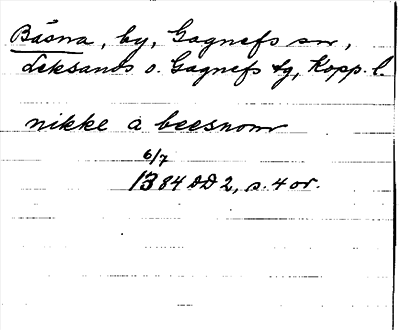 Bäsna, by, Gagnefs sn,
Leksands o. Gagnefs tg, Kopp. l.
nikke a beesnom
6/7
1384 DD 2, s. 4 or.